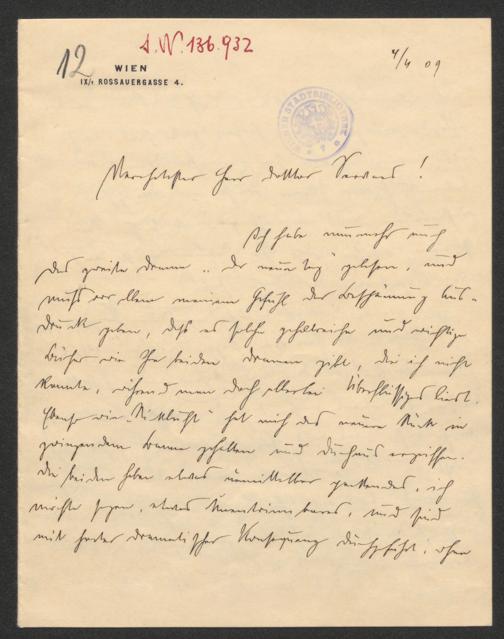 12
I. N. 136.932
4/4 09
WIEN
IX/1 ROSSAUERGASSE 4.
Verehrtester Herr Doktor Servaes!
Ich habe nunmehr auch
das zweite Drama „Der neue Tag“ gelesen, und
muß vor allem meinem Gefühl der Beschämung Aus-
druck geben, daß es solche gehaltreiche und wichtige
Bücher wie Ihre beiden Dramen gibt, die ich nicht
kannte, während man doch allerlei Überflüssiges liest.
Ebenso wie hat mich das neue Stück in
zwingendem Banne gehalten und durchaus ergriffen.
Die beiden haben etwas unmittelbar packendes, ich
möchte sagen, etwas Unentrinnbares, und sind
mit harter dramatischer Konsequenz durchgeführt, ohne